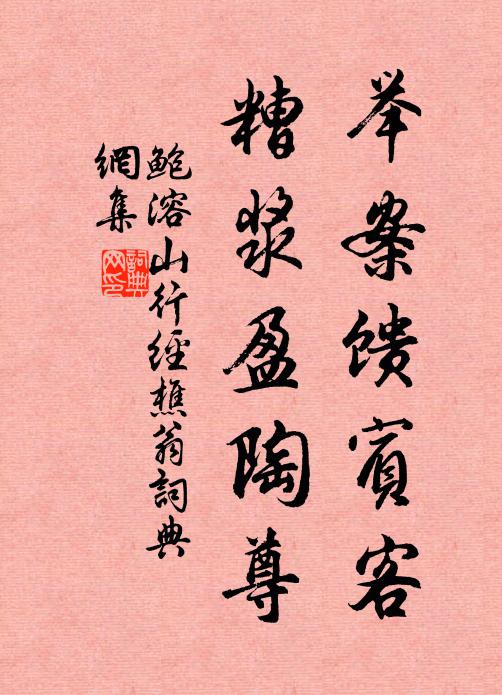 举案馈賓客
糟浆盈陶尊
鲍溶山行经樵翁詞典
網集
詞典
网印